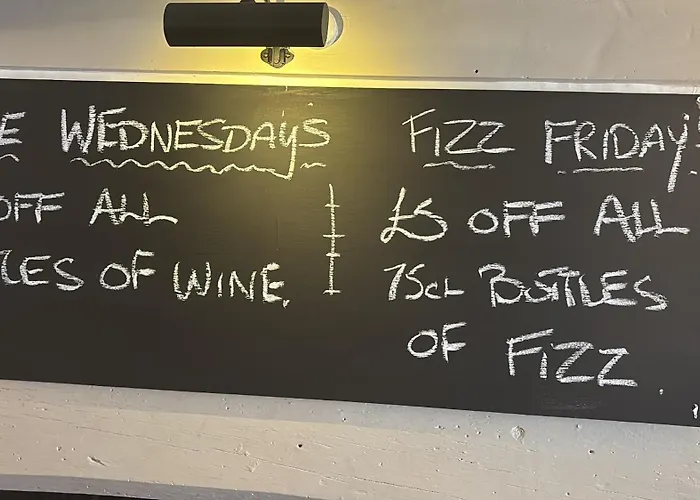 E WEDNESDAYS
OFF ALL
TLES OF WINE.
FIZZ FRIDAY
£5 OFF ALL
75CL BOTTLES
OF FIZZ.